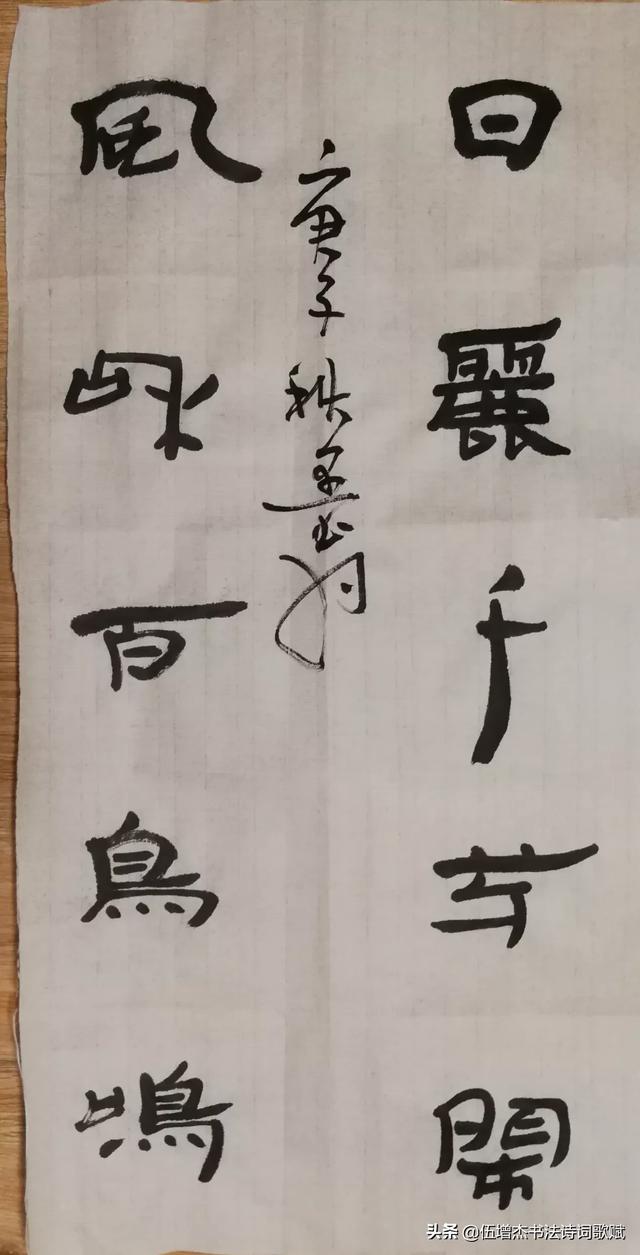 日麗千芳開
庚子秋
風和百鳥鳴
头条 @伍增杰书法诗词歌赋